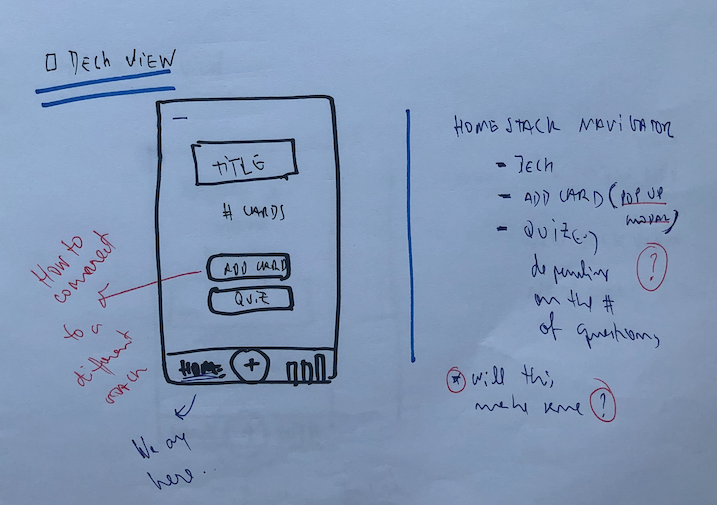 DECK VIEW
TITLE
# CARDS
ADD CARD
QUIZ
HOME
+
How to
connect
to a
different
stack
We are
here..
HOME STACK NAVIGATOR
- DECK
- ADD CARD (POP UP
MODAL)
- QUIZ
depending
on the #
of questions
?
* will this
make sense ?